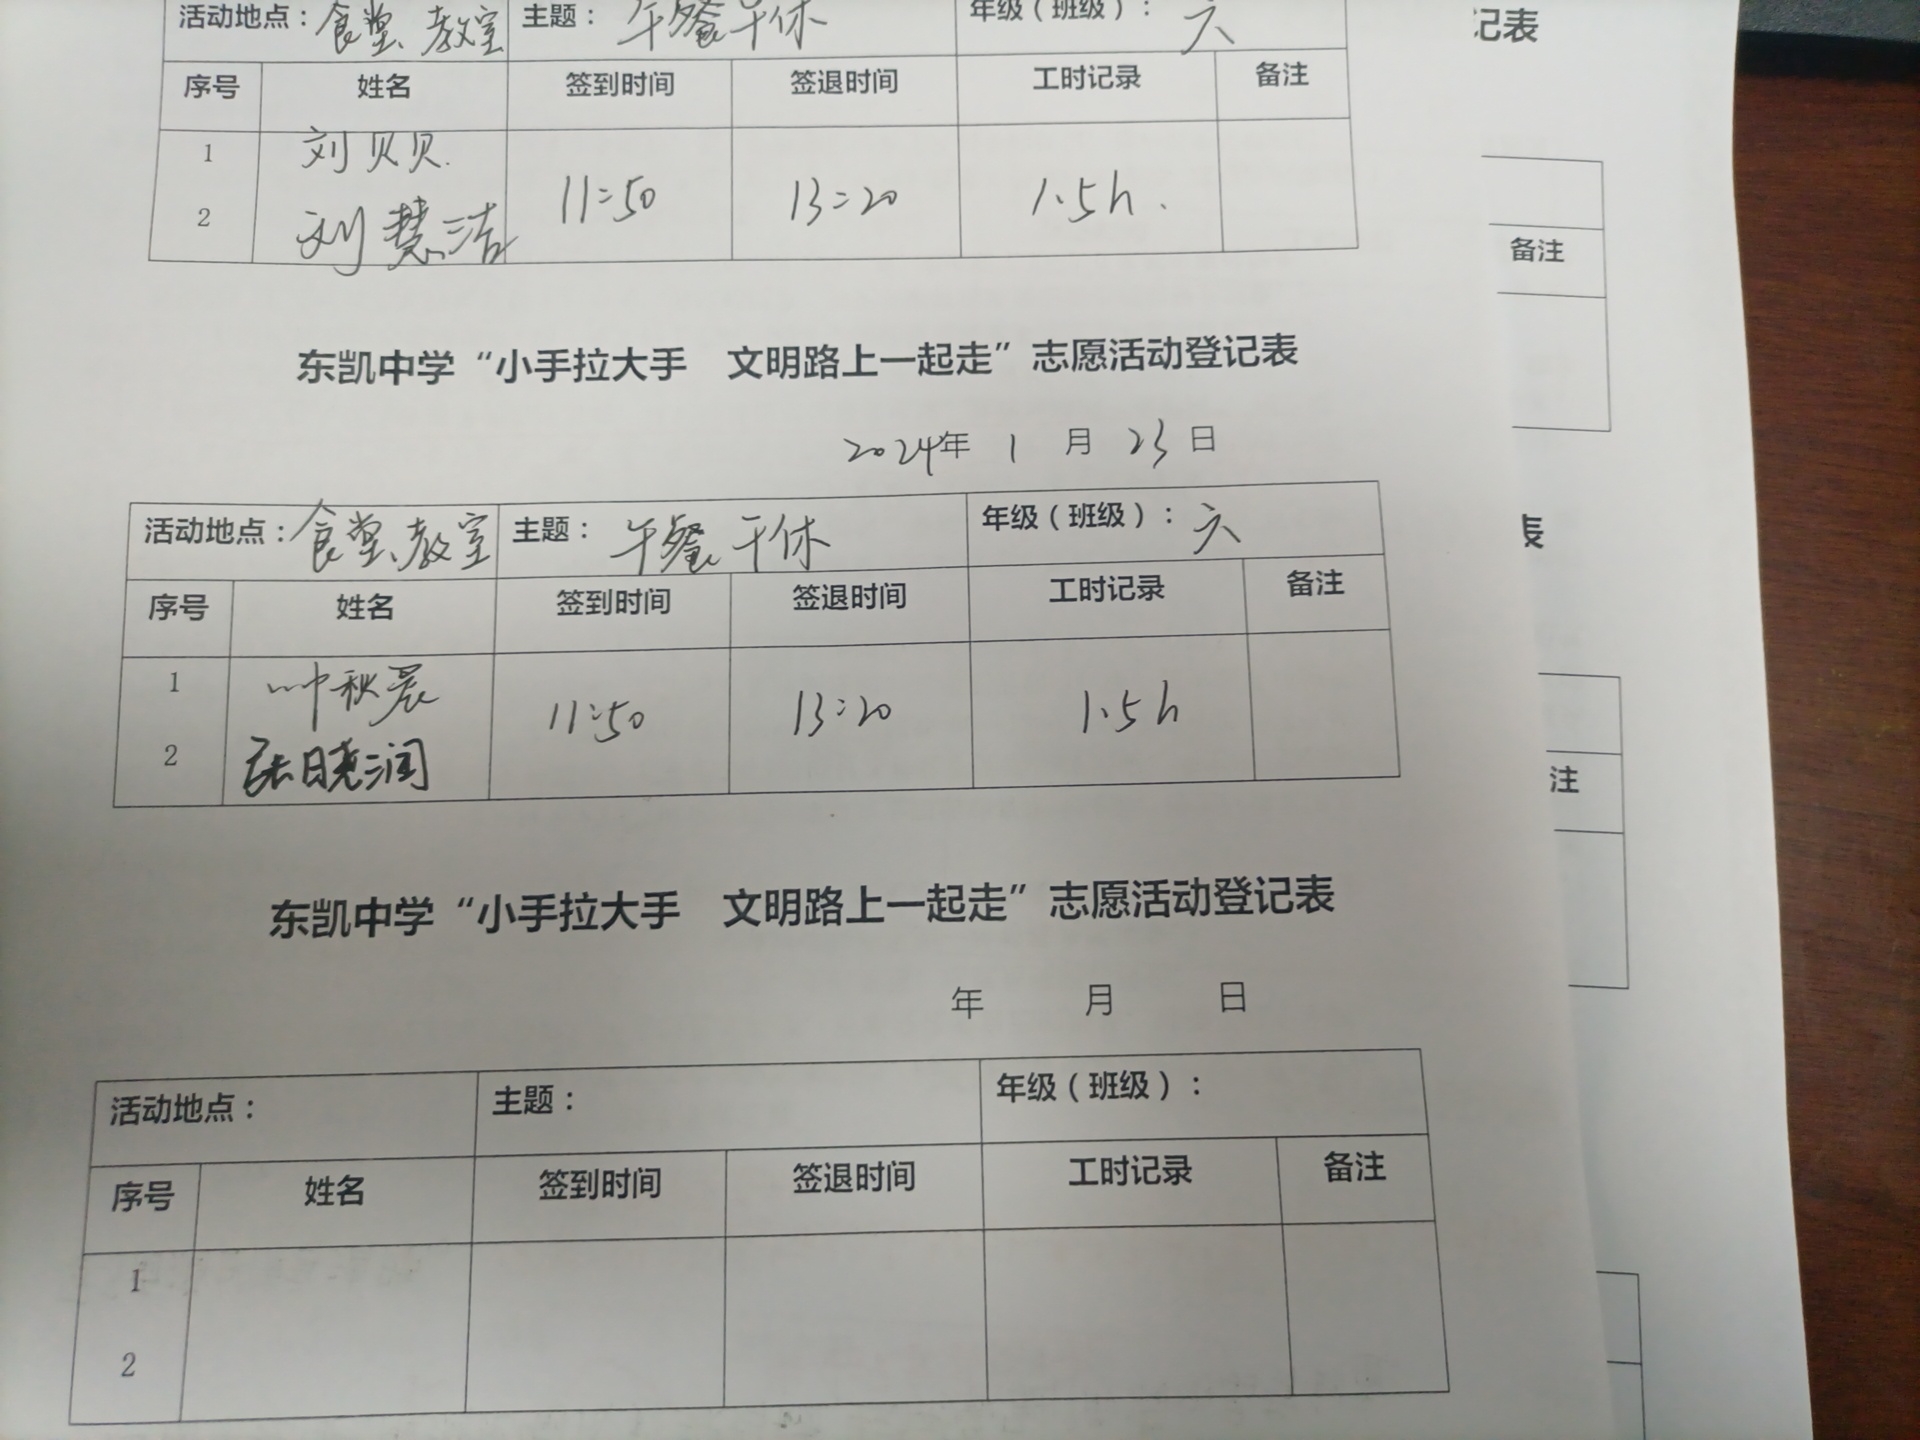 活动地点：食堂、教室 主题：午餐午休 年级（班级）：六
序号 姓名 签到时间 签退时间 工时记录 备注
1 刘贝贝
11:50 13:20 1.5h.
2 刘慧洁
东凯中学“小手拉大手 文明路上一起走”志愿活动登记表
2024年 1 月 23 日
活动地点：食堂、教室 主题：午餐午休 年级（班级）：六
序号 姓名 签到时间 签退时间 工时记录 备注
1 秋晨
11:50 13:20 1.5h
2 张晓润
东凯中学“小手拉大手 文明路上一起走”志愿活动登记表
年 月 日
活动地点： 主题： 年级（班级）：
序号 姓名 签到时间 签退时间 工时记录 备注
1
2
记表
备注
表
注